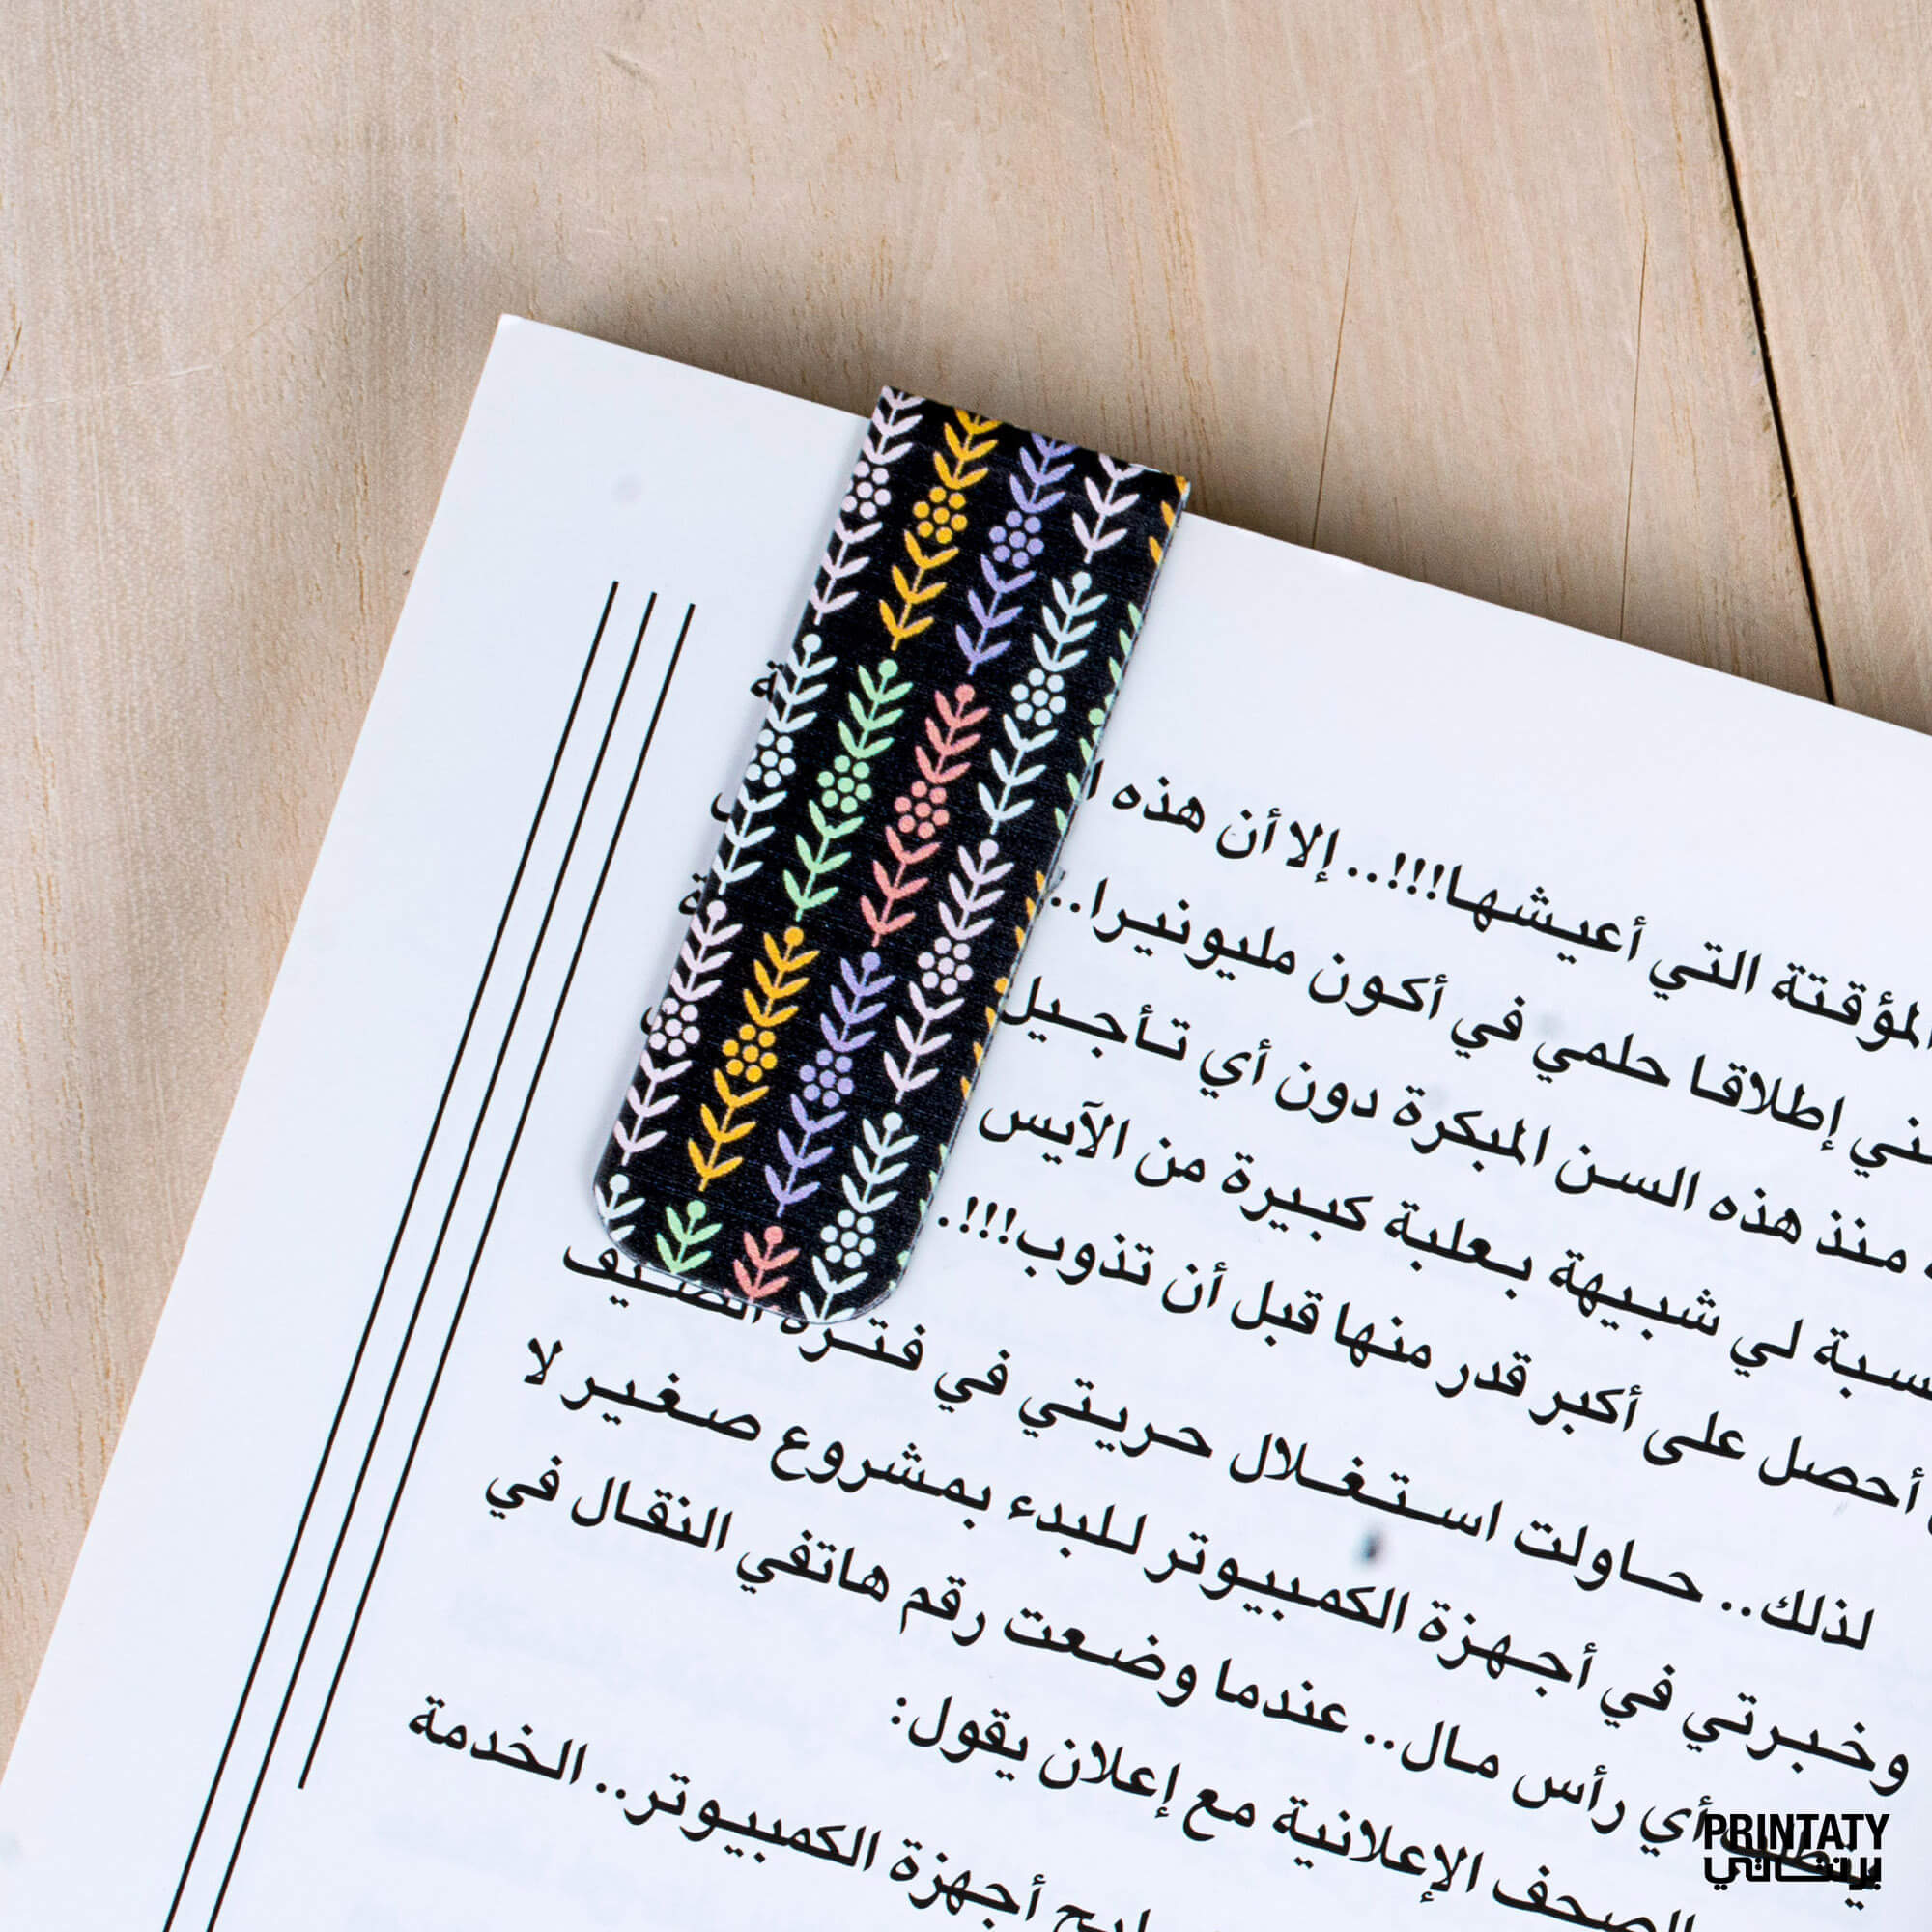 إلا أن هذه
المؤقتة التي أعيشها!!!..
إطلاقا حلمي في أكون مليونيرا..
منذ هذه السن المبكرة دون أي تأجيل
لي شبيهة بعلبة كبيرة من الآيس
أحصل على أكبر قدر منها قبل أن تذوب!!!.
لذلك.. حاولت استغلال حريتي في فترة الصيف
وخبرتي في أجهزة الكمبيوتر للبدء بمشروع صغير لا
يتطلب أي رأس مال.. عندما وضعت رقم هاتفي النقال في
الصحف الإعلانية مع إعلان يقول:
أجهزة الكمبيوتر.. الخدمة
PRINTATY
برنتاتي